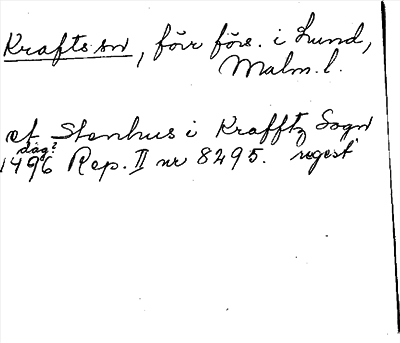 Krafts sn, förr förs. i Lund,
Malm. l.
et Stenhus i Krafftz Sogn
dag?
1496 Rep. II nr 8295. regest